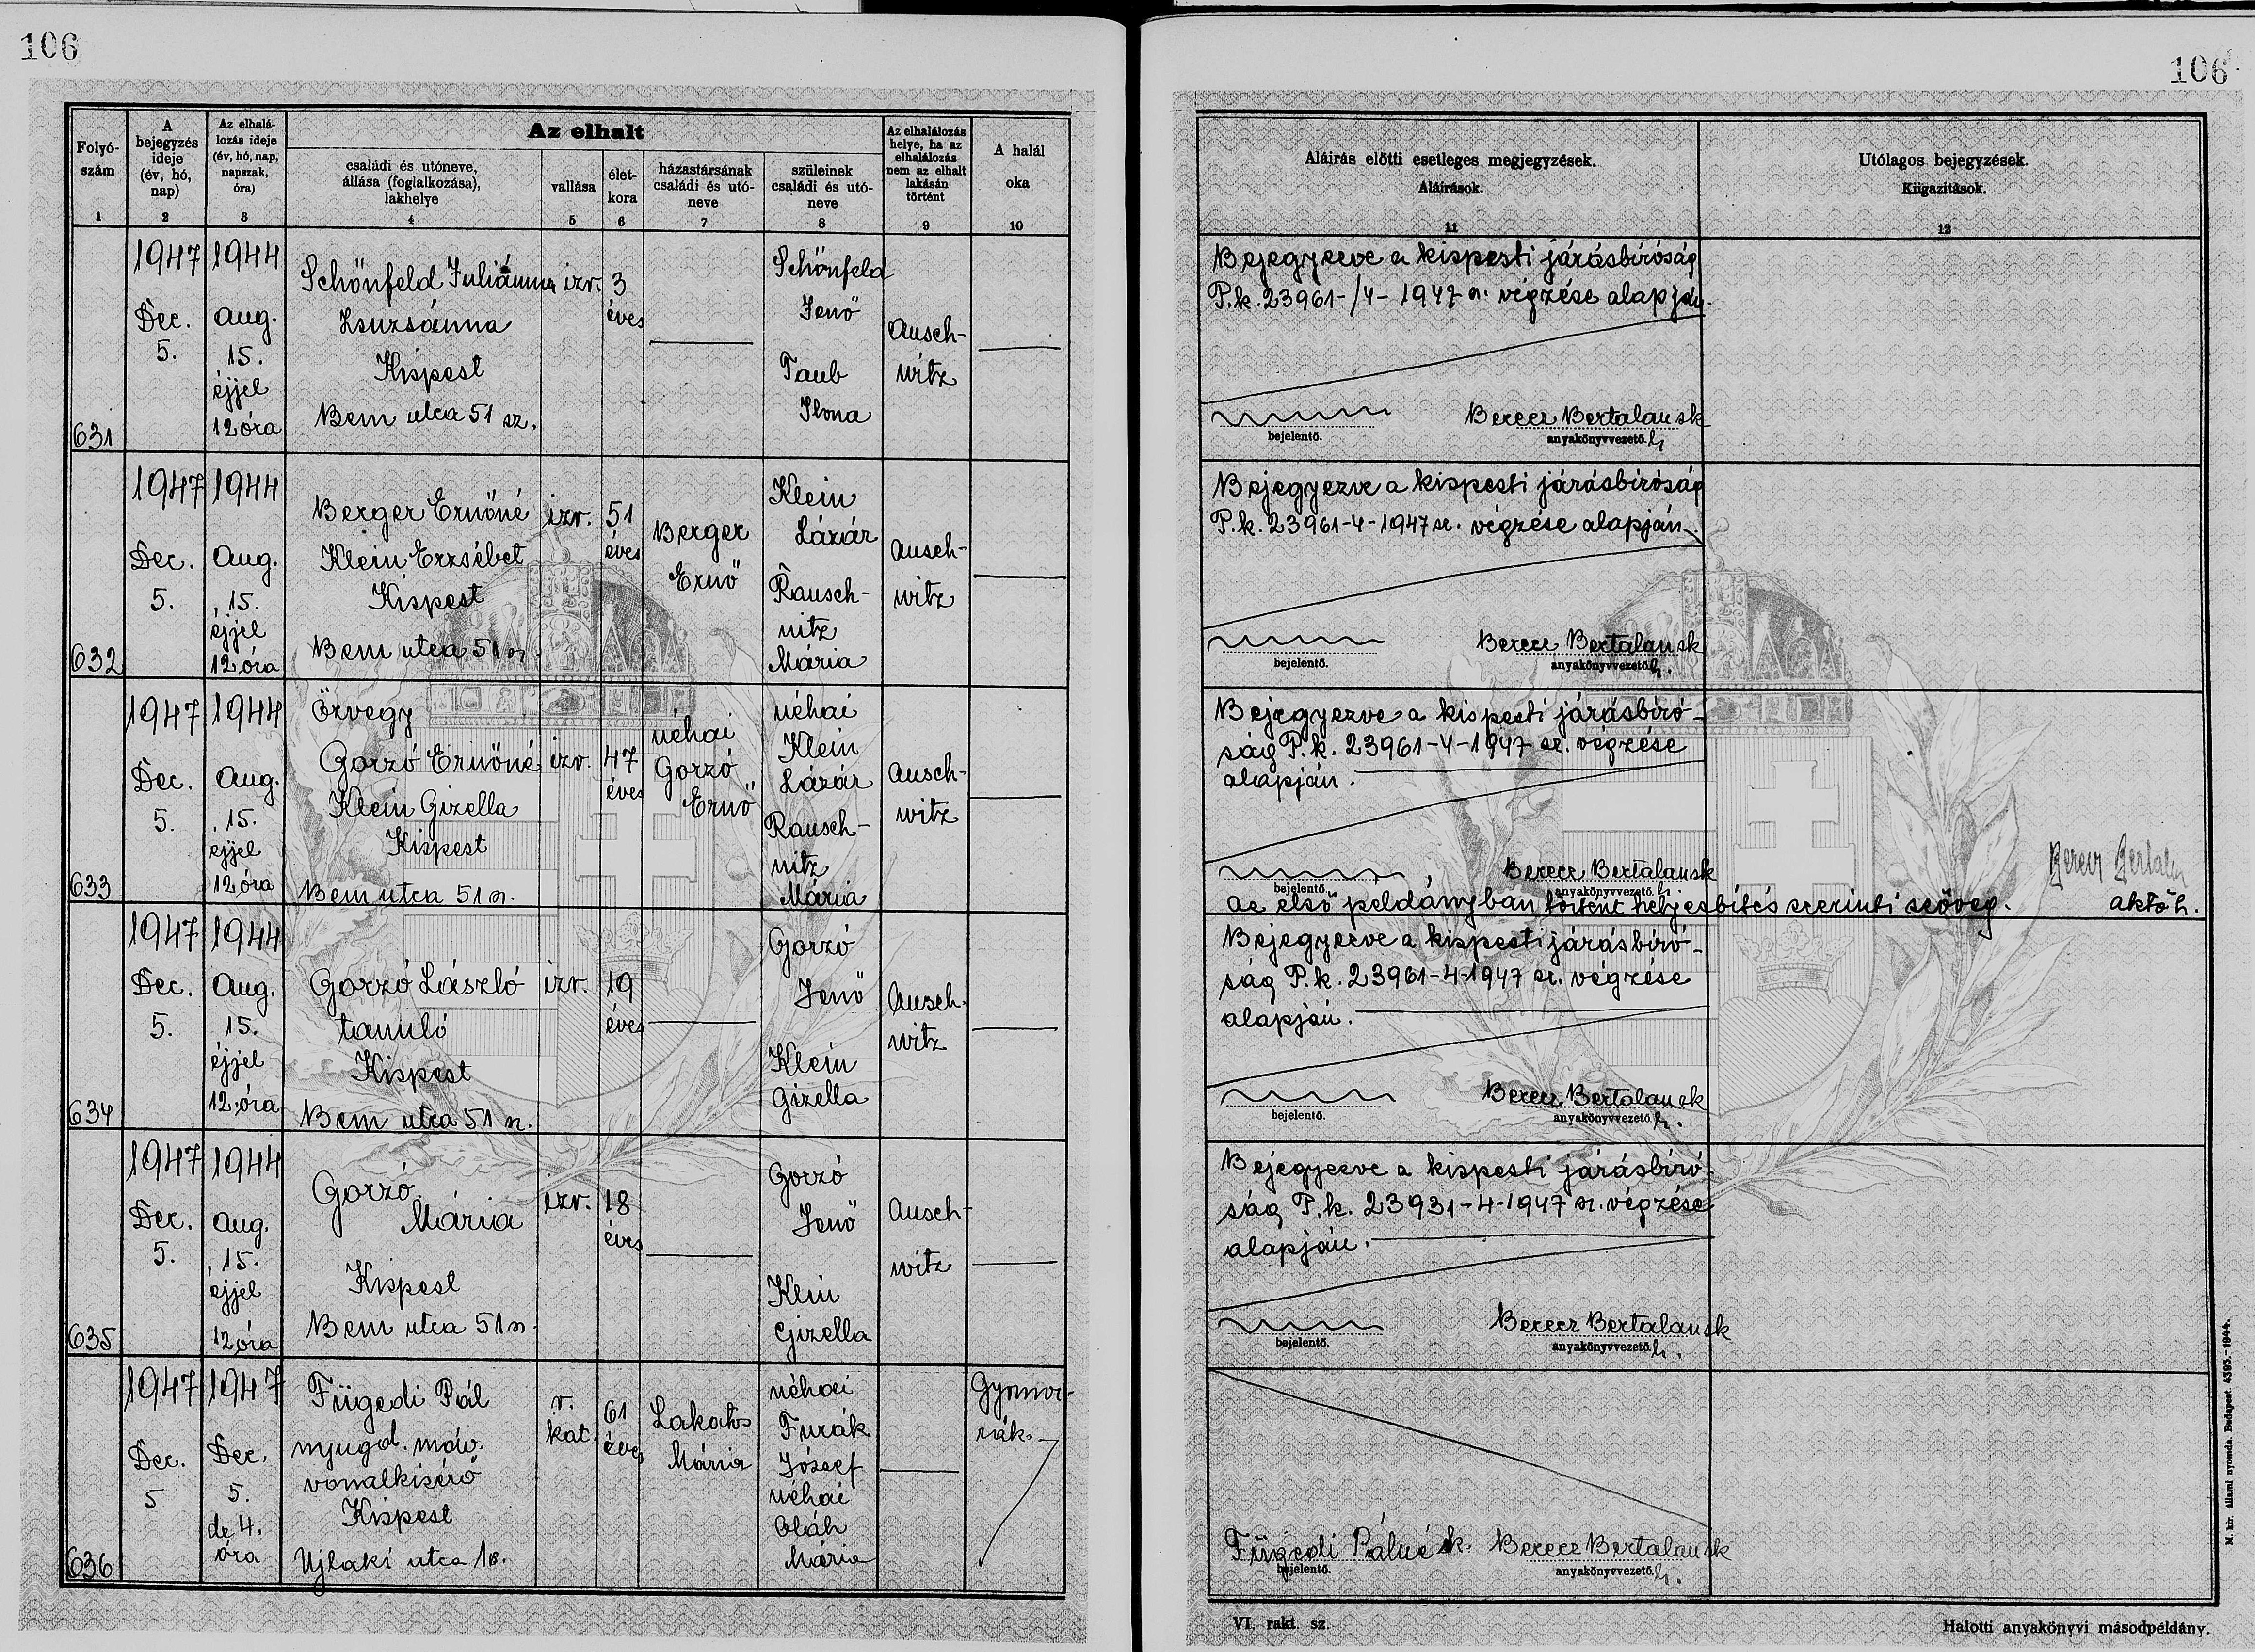 106
106
Folyó-
szám
1
A
bejegyzés
ideje
(év, hó,
nap)
2
Az elhalá-
lozás ideje
(év, hó, nap,
napszak,
óra)
3
Az elhalt
családi és utóneve,
állása (foglalkozása),
lakhelye
4
vallása
5
élet-
kora
6
házastársának
családi és utó-
neve
7
szüleinek
családi és utó-
neve
8
Az elhalálozás
helye, ha az
elhalálozás
nem az elhalt
lakásán
történt
9
A halál
oka
10
Aláírás előtti esetleges megjegyzések.
Aláírások.
11
Utólagos bejegyzések.
Kiigazítások.
12
631
1947
Dec.
5.
1944
Aug.
15.
éjjel
12 óra
Schönfeld Juliánna
Zsuzsánna
Kispest
Bem utca 51 sz.
izr.
3
éves
Schönfeld
Jenő
Taub
Ilona
Ausch-
witz
Bejegyezve a kispesti járásbíróság
P.k. 23961-/4-1947 sz. végzése alapján.
Berecz Bertalan sk
bejelentő.
anyakönyvvezető h.
632
1947
Dec.
5.
1944
Aug.
15.
éjjel
12 óra
Berger Ernőné
Klein Erzsébet
Kispest
Bem utca 51 sz
izr.
51
éves
Berger
Ernő
Klein
Lázár
Rausch-
nitz
Mária
Ausch-
witz
Bejegyezve a kispesti járásbíróság
P.k. 23961-4-1947 sz. végzése alapján.
Berecz Bertalan sk
bejelentő.
anyakönyvvezető h.
633
1947
Dec.
5.
1944
Aug.
15.
éjjel
12 óra
Özvegy
Gorzó Ernőné
Klein Gizella
Kispest
Bem utca 51 sz.
izr.
47
éves
néhai
Gorzó
Ernő
néhai
Klein
Lázár
Rausch-
nitz
Mária
Ausch-
witz
Bejegyezve a kispesti járásbíró-
ság P.k. 23961-4-1947 sz. végzése
alapján.
Berecz Bertalan sk
bejelentő.
anyakönyvvezető h.
Az első példányban történt helyesbítés szerinti szöveg.
Berecz Bertalan
aktő h.
634
1947
Dec.
5.
1944
Aug.
15.
éjjel
12 óra
Gorzó László
tanuló
Kispest
Bem utca 51 sz.
izr.
19
éves
Gorzó
Jenő
Klein
Gizella
Ausch-
witz
Bejegyezve a kispesti járásbíró-
ság P.k. 23961-4-1947 sz. végzése
alapján.
Berecz Bertalan sk
bejelentő.
anyakönyvvezető h.
635
1947
Dec.
5.
1944
Aug.
15.
éjjel
12 óra
Gorzó
Mária
Kispest
Bem utca 51 sz.
izr.
18
éves
Gorzó
Jenő
Klein
Gizella
Ausch-
witz
Bejegyezve a kispesti járásbíró-
ság P.k. 23931-4-1947 sz. végzése
alapján.
Berecz Bertalan sk
bejelentő.
anyakönyvvezető h.
636
1947
Dec.
5
1947
Dec.
5.
de 4.
óra
Fügedi Pál
nyugd. máv.
vonalkisérő
Kispest
Ujlaki utca 18.
r.
kat.
61
éves
Lakatos
Mária
néhai
Furák
József
néhai
Oláh
Mária
Gyomor-
rák.
Fügedi Pálné sk. Berecz Bertalan sk
bejelentő.
anyakönyvvezető h.
VI. rakt. sz.
Halotti anyakönyvi másodpéldány.
M. kir. állami nyomda. Budapest. 4393.-1944.